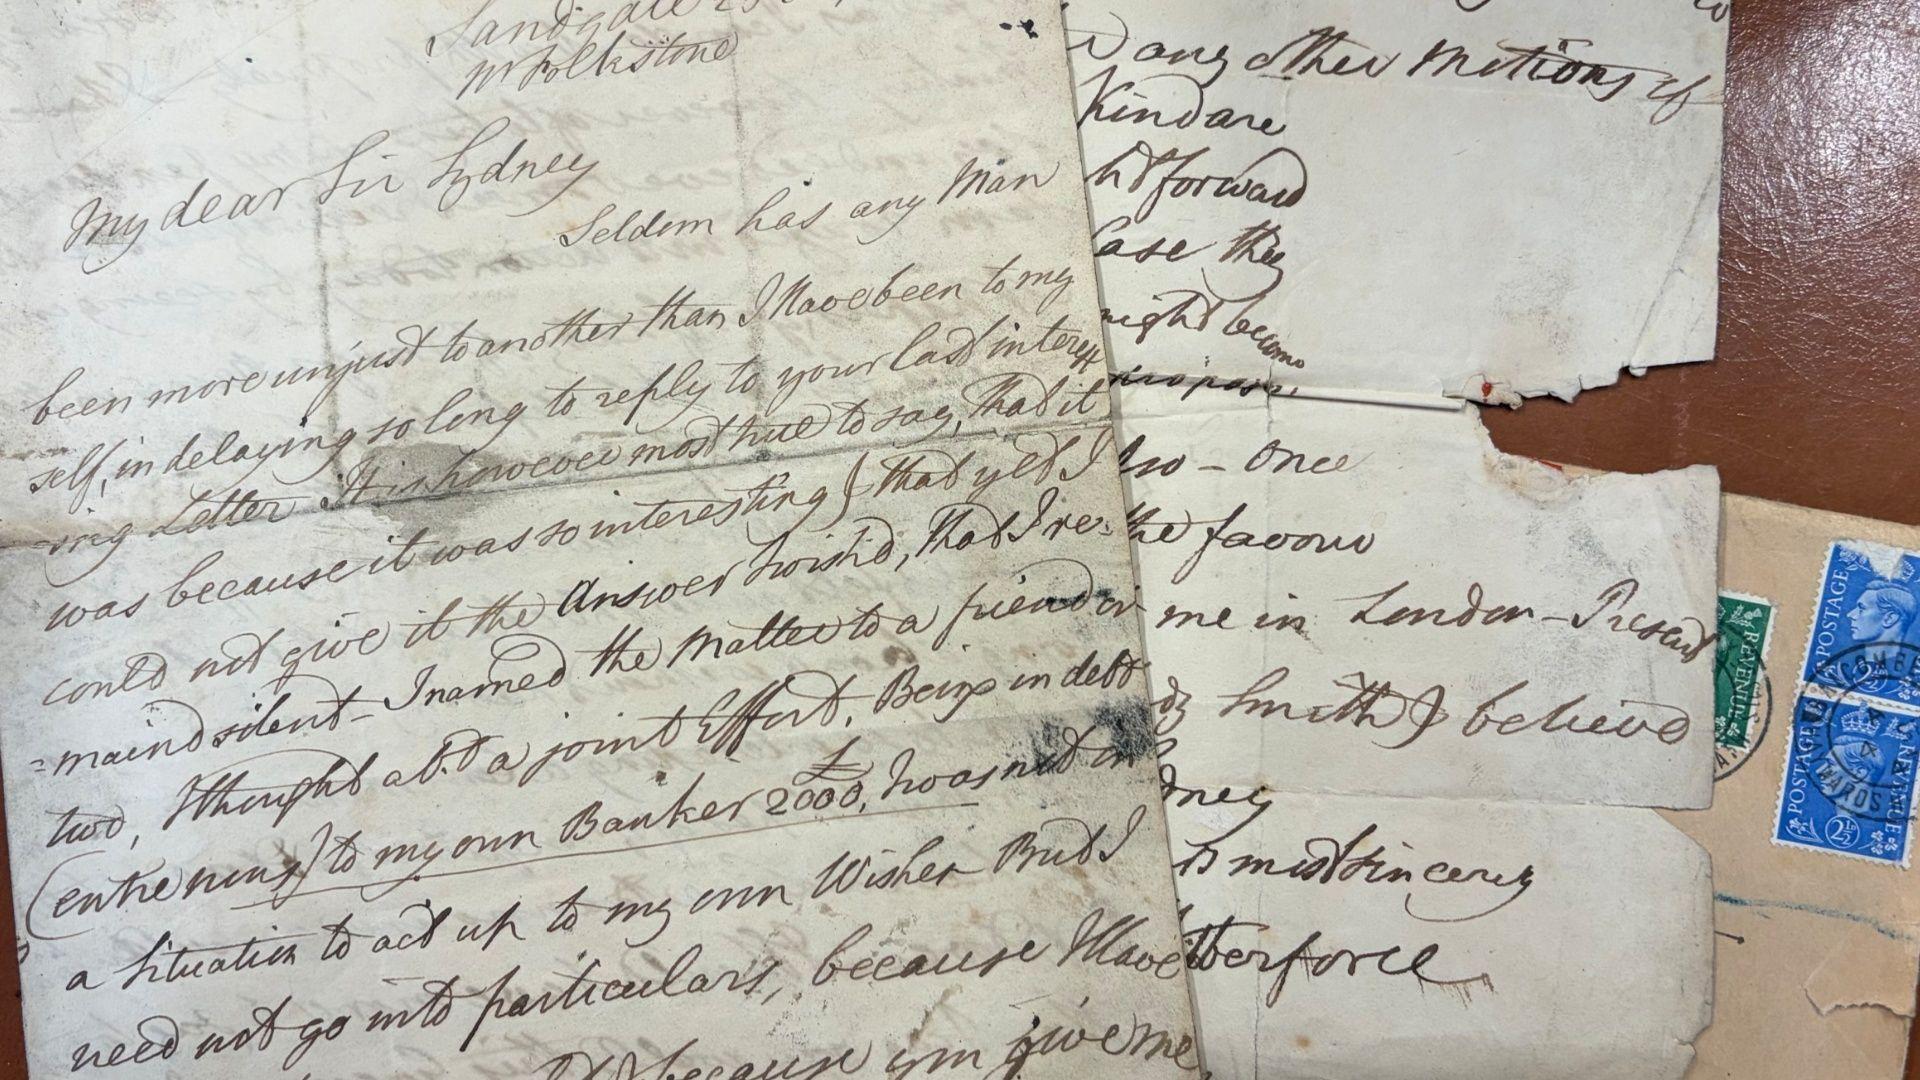 Sandgate
Nr Folkstone
My dear Sir Sydney
Seldom has any Man
been more unjust to another than I have been to my
self, in delaying so long to reply to your last interest
=ing Letter It is however most true to say, that it
was because it was so interesting & that yet I
could not give it the Answer I wish'd, that I re=
=main'd silent - I named the Matter to a friend or
two, I thought abt. a joint Effort, Being in debt
(entre nous) to my own Banker £2000, I was not in
a Situation to act up to my own Wishes But I
need not go into particulars, because I have
because you give me
any other Motions if
Kindare
forward
Case they
might become
- Once
the favour
me in London - Present
Smith & believe
dney
most sincerely
lberforce
POSTAGE
REVENUE
2½D
POSTAGE
REVENUE
2½D
REVENUE